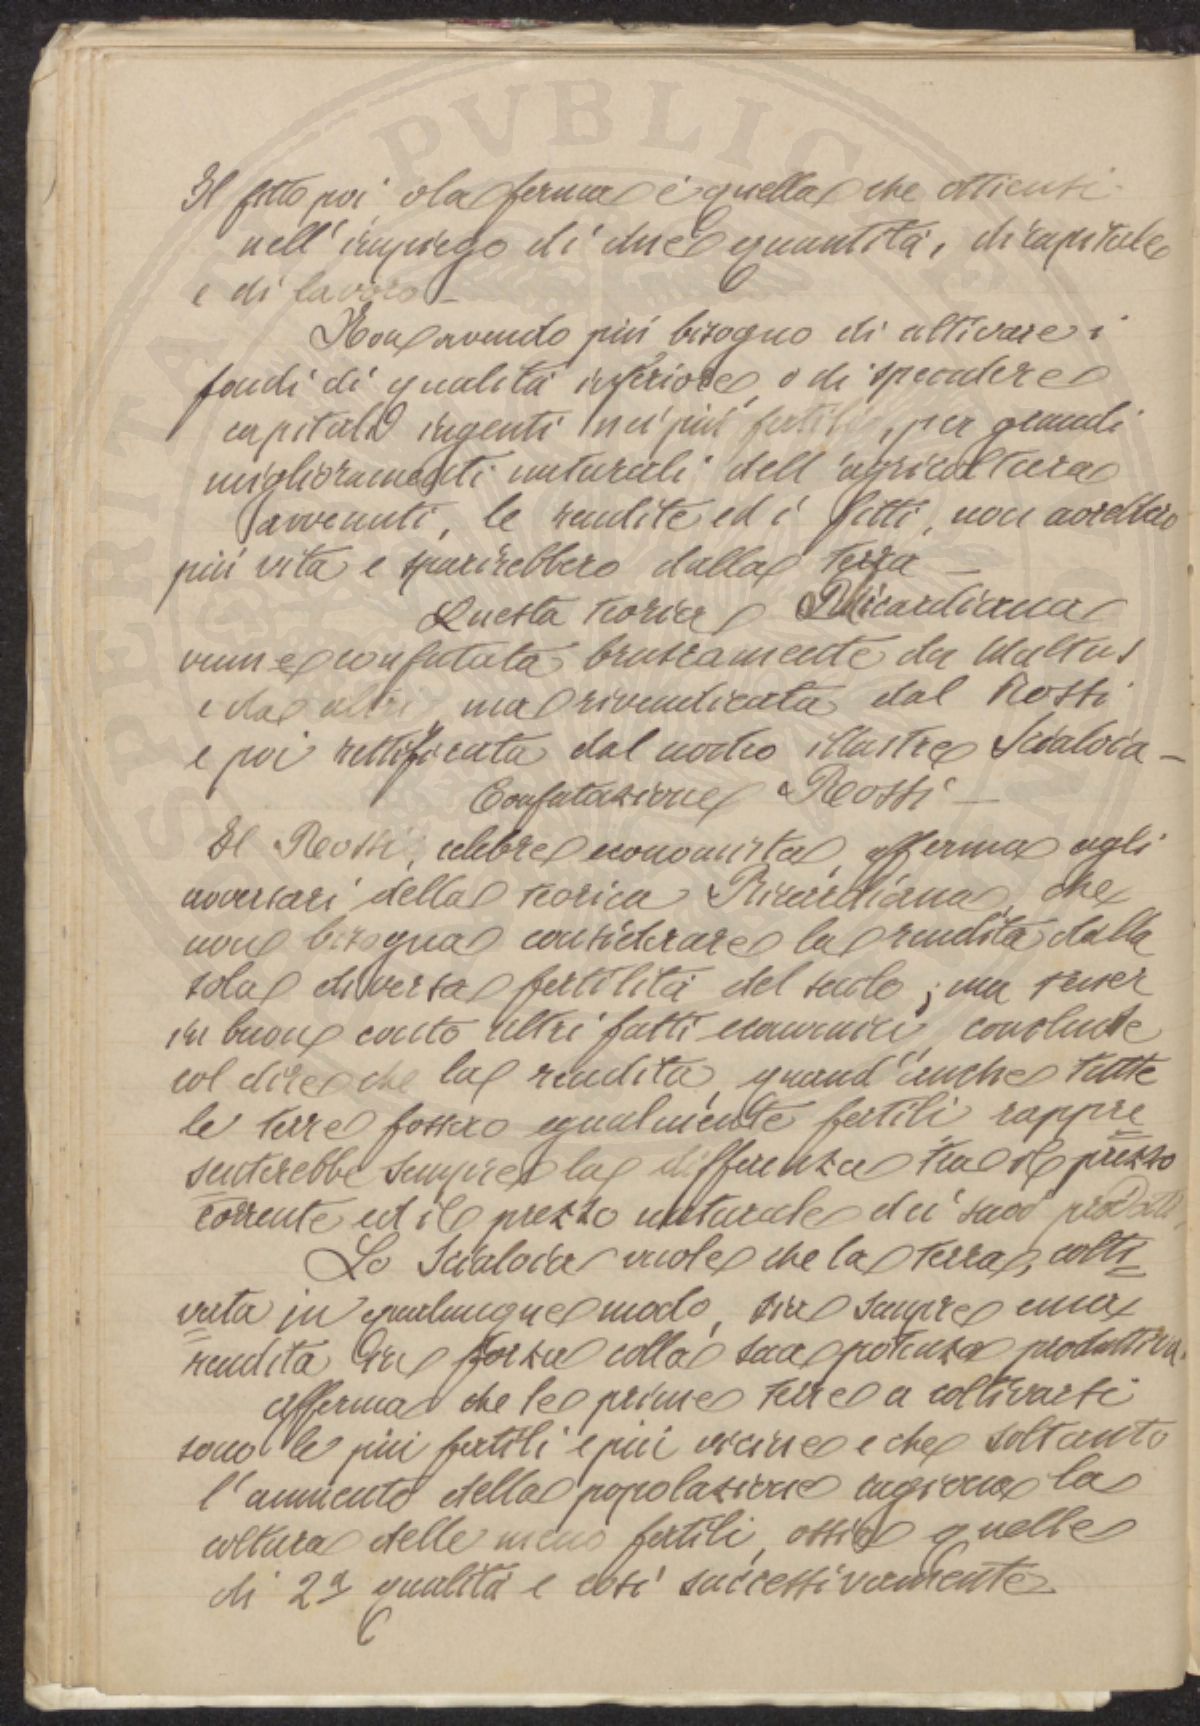 Il fitto poi o la ferma è quella che ottiensi
nell'impiego di due quantità, di capitale
e di lavoro —
Non avendo più bisogno di coltivare i
fondi di qualità inferiore, o di spendere
capitali ingenti nei più fertili, per grandi
miglioramenti naturali dell'agricoltura
avvenuti, le rendite ed i fitti, non avrebbero
più vita e sparirebbero dalla terra —
Questa teoria Ricardiana
venne confutata bruscamente da Maltus
e da altri, ma rivendicata dal Rossi
e poi rettificata dal nostro illustre Scialoia —
Confutazione Rossi —
Il Rossi, celebre economista, afferma agli
avversari della teorica Ricardiana, che
non bisogna considerare la rendita dalla
sola diversa fertilità del suolo; ma tener
in buon conto altri fatti economici, conclude
col dire che la rendita, quand'anche tutte
le terre fossero egualmente fertili rappre
senterebbe sempre la differenza tra il prezzo
corrente ed il prezzo naturale dei suoi prodotti.
Lo Scialoia vuole che la terra, colti
vata in qualunque modo, sia sempre una
rendita in forza colla sua potenza produttiva.
Afferma che le prime terre a coltivarsi
sono le più fertili e più vicine e che soltanto
l'aumento della popolazione cagiona la
coltura delle meno fertili, ossia quelle
di 2ª qualità e così successivamente